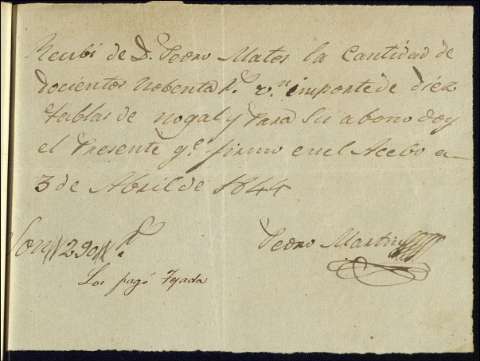 Recibí de D. Pedro Matos la Cantidad de
docientos nobenta r.s v.n importe de diez
tablas de nogal y Para su abono doy
el Presente q.e firmo en el Acebo a
3 de Abril de 1844
Son 290 r.s
Pedro Martin
Los pagó Tejada